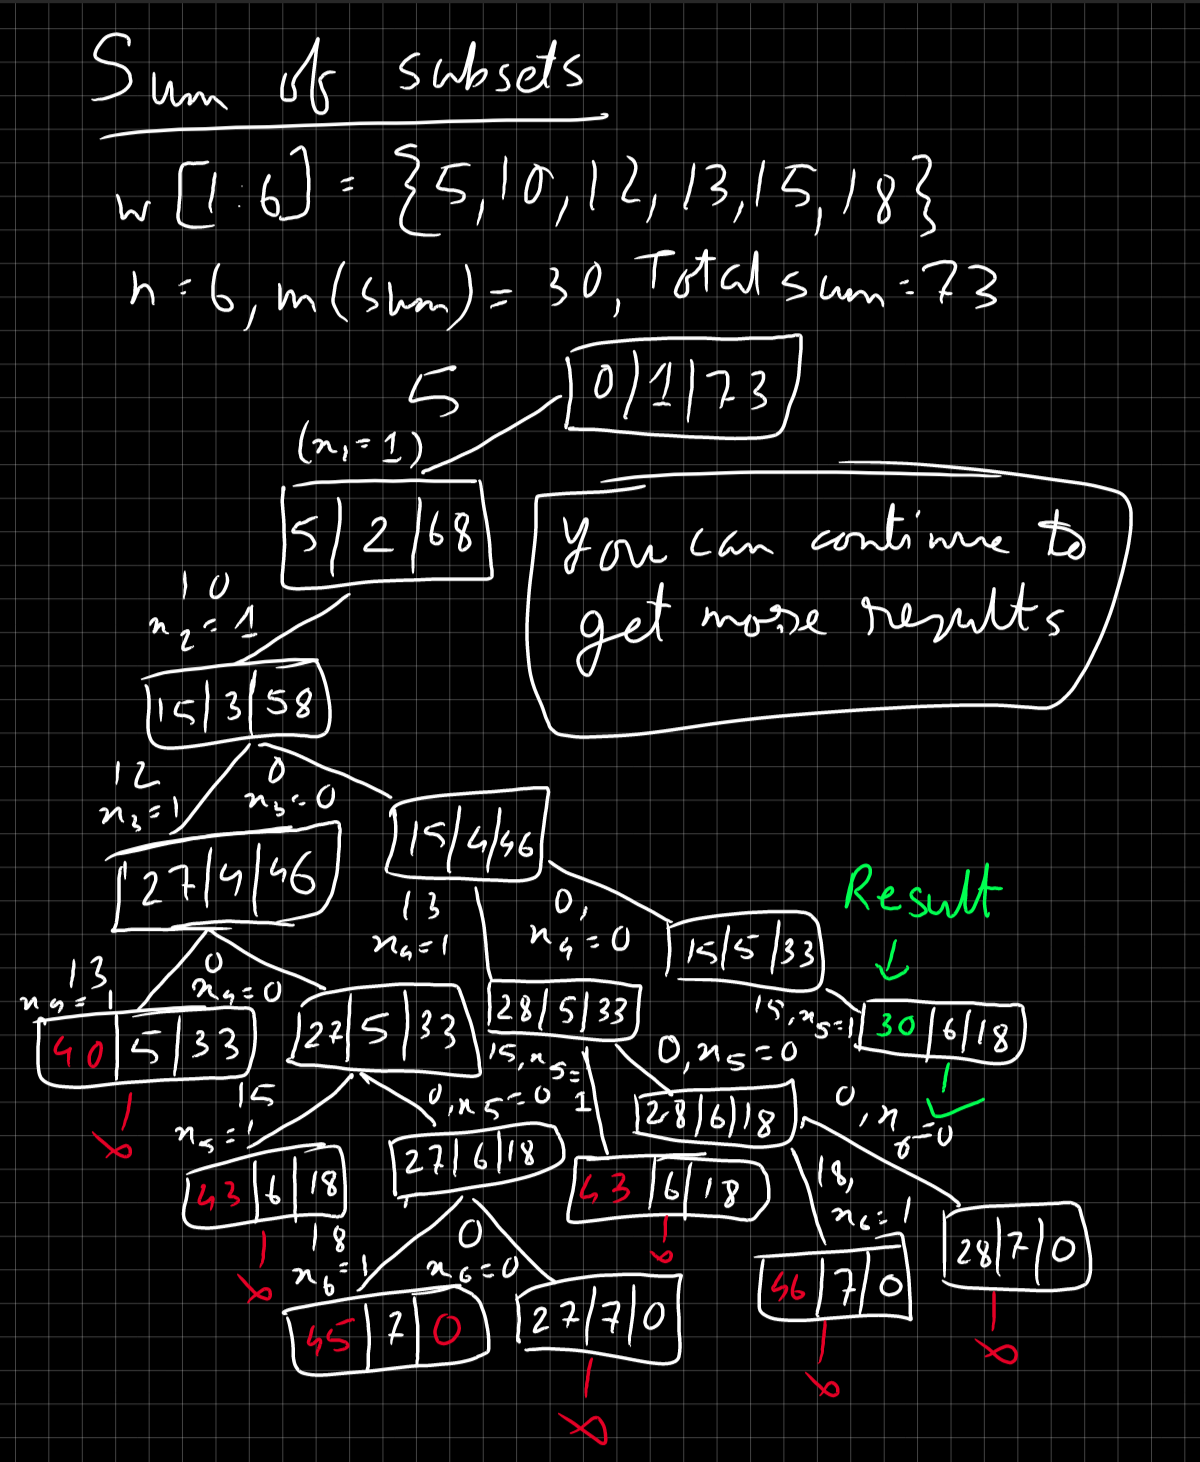 Sum of subsets
w[1:6] = {5,10,12,13,15,18}
n=6, m(sum) = 30, Total sum=73
0|1|73
5
(x₁=1)
5|2|68
You can continue to
get more results
10
x₂=1
15|3|58
12
x₃=1
0
x₃=0
15|4|46
27|4|46
Result
13
x₄=1
0,
x₄=0
15|5|33
13
x₄=1
0
x₄=0
40|5|33
27|5|33
28|5|33
15,x₅=1
30|6|18
15
x₅=1
0,x₅=0
15,x₅=
1
0,x₅=0
28|6|18
0,x₆=0
43|6|18
27|6|18
43|6|18
18,
x₆=1
28|7|0
18
x₆=1
0
x₆=0
45|7|0
27|7|0
46|7|0